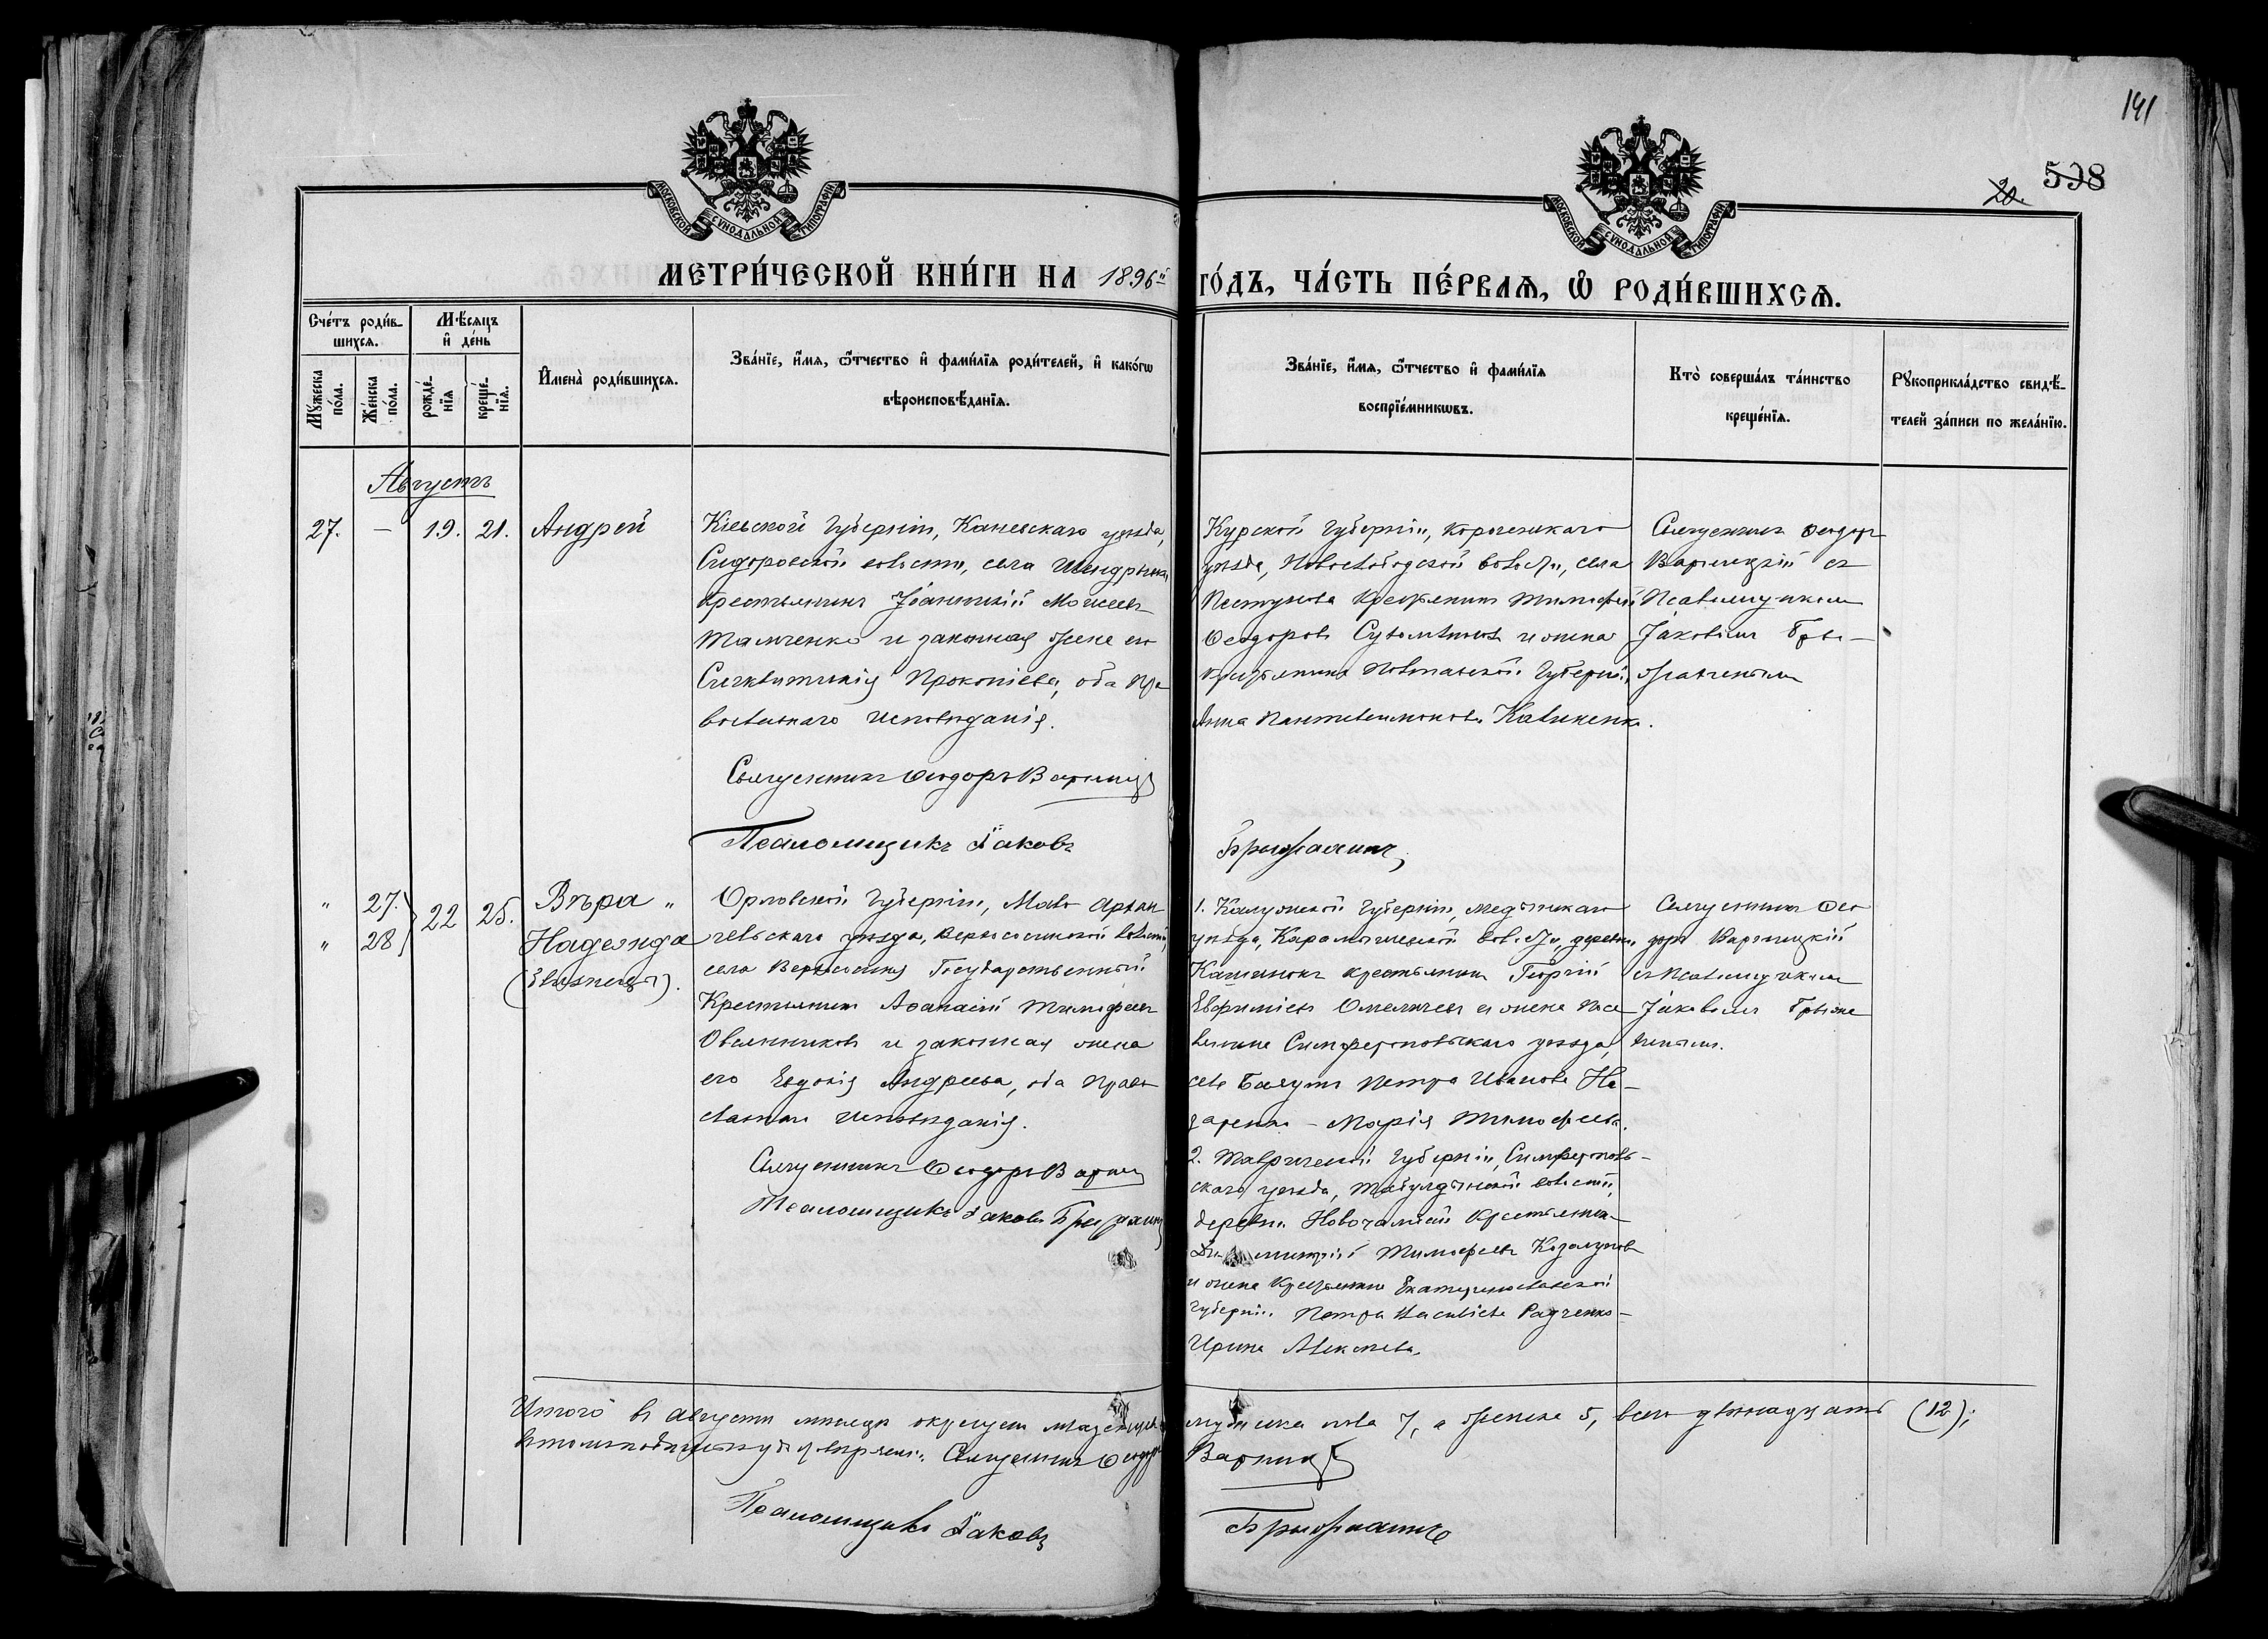 141
20.
598
МОСКОВСКОЙ СѴНОДАЛЬНОЙ ТИПОГРАФІИ
МОСКОВСКОЙ СѴНОДАЛЬНОЙ ТИПОГРАФІИ
МЕТРИ́ЧЕСКОЙ КНИ́ГИ НА 1896й ГО́ДЪ, ЧА́СТЬ ПЕ́РВАѦ, Ѽ РОДИ́ВШИХСѦ.
Сче́тъ роди́в-
шихсѧ.
Мѣ́сѧцъ
и҆ де́нь
Мꙋ́жеска
по́ла.
Же́нска
по́ла.
рожде́-
нїѧ
креще́-
нїѧ.
И҆мена̀ роди́вшихсѧ.
Зва́нїе, и҆́мѧ, ѻ҆́тчество и҆ фами́лїѧ роди́телей, и҆ како́гѡ
вѣроисповѣ́данїѧ.
Зва́нїе, и҆́мѧ, ѻ҆́тчество и҆ фами́лїѧ
воспрїе́мникѡвъ.
Кто̀ соверша́лъ та́инство
креще́нїѧ.
Рꙋкоприкла́дство свидѣ́-
телей за́писи по жела́нїю.
Августъ
27. — 19. 21. Андрей
Кіевской губерніи, Каневскаго уѣзда,
Сидоровской волости, села
крестьянинъ Іоанникій Моисеевъ
и законная жена его
Прокопіева, оба Пра
вославнаго исповѣданія.
Священникъ Ѳеодоръ Варниц
Псаломщикъ Іаковъ
Курской губерніи, Корочанскаго
уѣзда, Новослободской волости, села
крестьянинъ Тимофей
Ѳеодоровъ и жена
крестьянина Полтавской губерніи,
Анна Пантелеимонова Калиненко.
Брыжахинъ
Священникъ Ѳеодоръ
Варницкій съ
Псаломщикомъ
Іаковомъ Бры-
жахинымъ
" 27. } 22 25. Вѣра "
" 28 Надежда
(близнецы).
Орловской губерніи, Мало Архан
гельскаго уѣзда, волости,
села Государственный
крестьянинъ Аѳанасій Тимофеевъ
Овсянниковъ и законная жена
его Евдокія Андреева, оба Право
славнаго исповѣданія.
Священникъ Ѳеодоръ Варниц
Псаломщикъ Іаковъ Брыжахинъ
1. Калужской губерніи, Медынскаго
уѣзда, волости, деревни
крестьянинъ Георгій
Евфиміевъ и жена посе
лянина Симферопольскаго уѣзда,
села Петра Иванова На-
заренко – Марія Тимофеева.
2. Таврической губерніи, Симферополь-
скаго уѣзда, Табулдинской волости,
деревни крестьянинъ
Димитрій Тимофеевъ
и жена крестьянина Екатеринославской
губерніи Петра Васильева Радченко –
Ирина Алексѣева.
Священникъ Ѳео
доръ Варницкій
съ Псаломщикомъ
Іаковомъ Брыжа
хинымъ.
Итого въ августѣ мѣсяцѣ окрещен младенцевъ мужеска пола 7, а женска 5, всего двѣнадцать (12);
Священникъ Ѳеодоръ Варниц
Псаломщикъ Іаковъ Брыжахинъ